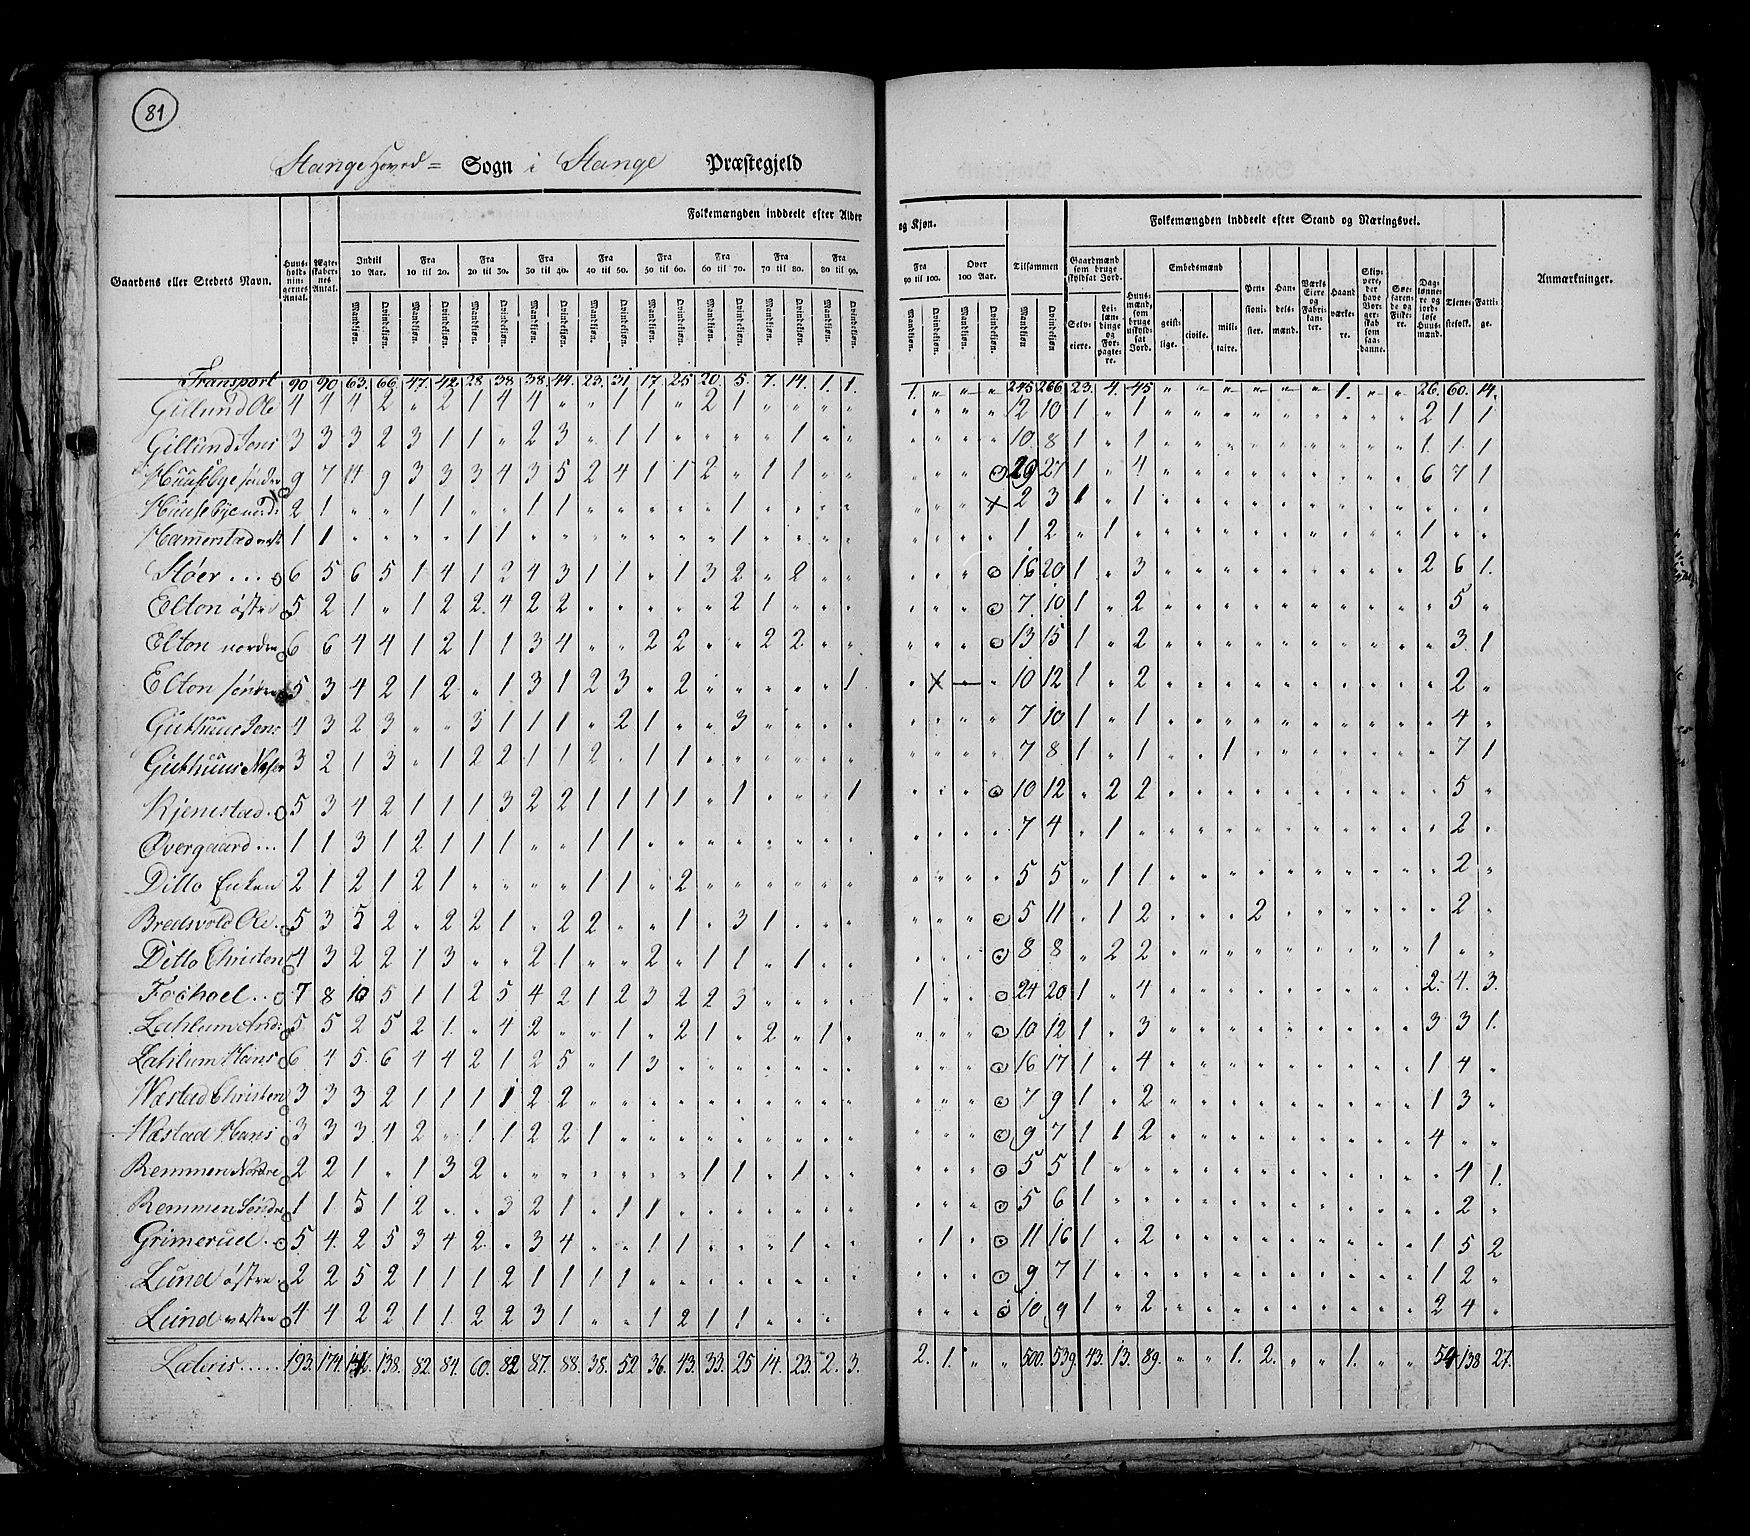 81
Stange Hoved = Sogn i Stange Præstegjeld
Folkemængden inddeelt efter Alder og Kjøn.
Folkemængden inddeelt efter Stand og Næringsvei.
Gaardens eller Stedets Navn.
Huusholdningernes Antal.
Ægteskabernes Antal.
Indtil 10 Aar.
Fra 10 til 20.
Fra 20 til 30.
Fra 30 til 40.
Fra 40 til 50.
Fra 50 til 60.
Fra 60 til 70.
Fra 70 til 80.
Fra 80 til 90.
Fra 90 til 100.
Over 100 Aar.
Tilsammen
Mandkjøn. Qvindekjøn.
Gaardmænd som bruge skyldsat Jord.
Selveiere.
Leilændinge og Forpagtere.
Huusmænd, som bruge uskyldsat Jord.
Embedsmænd
geistlige.
civile.
militaire.
Pensionister.
Handelsmænd.
Værks Eiere og Fabrikanter.
Haandværkere.
Skippere, der have Borgerskab som saadanne.
Søefarende og Fiskere.
Dagлønnere og jordløse Huusmænd.
Tjenestefolk.
Fattige.
Anmærkninger.
Transport 90 90 63. 66. 47. 42. 28. 38. 38. 44. 23. 31. 17. 25 20. 5. 7. 14. 1. 1. 1. " " " 245 266 23. 4. 45 " " " " " " 1. " " 26. 60. 14.
Gillund Ole 4 4 4 2 " 2 1 4 4 " " 1 1 " 2 1 " " " " " " " " 12 10 1 " 1 " " " " " " " " " 2 1 1
Gillund Jens 3 3 3 2 3 1 1 " 2 3 " 1 1 " " " " 1 " " " " " " 10 8 1 " 1 " " " " " " " " " 1 1 1
Huusebye søndre 9 7 14 9 3 3 3 4 3 5 2 4 1 1 2 " 1 1 " " " " " 29 27 1 " 4 " " " " " " " " " 6 7 1
Huusebye nord: 2 1 " " 1 1 " " 1 1 " " " " " 1 " " " " " " " 2 3 1 " 1 " " " " " " " " " " " "
Hamerstad vest 1 1 " " " " 1 1 " " " " " " " 1 " " " " " " " " 1 2 " 1 " " " " " " " " " " 1 " "
Støer 6 5 6 5 1 4 1 2 4 3 1 1 " 1 3 2 " 2 " " " " " 16 20 1 " 3 " " " " " " " " " 2 6 1.
Elton østre 5 2 1 " 1 2 2 4 2 2 " " " " " 2 1 " " " " " " 7 10 1 " 2 " " " " " " " " " " 5 "
Elton nordre 6 6 4 4 1 2 1 1 3 4 " " 2 2 " " 2 2 " " " " " 13 15 1 " 2 " " " " " " " " " " 3 1
Elton søndre 5 3 4 2 1 2 " 1 3 1 2 3 " 2 " " " " " 1 " " 10 12 1 " 2 " " " " " " " " " " 2 "
Guthuus Jens 4 3 2 3 " " 3 1 1 1 " 2 1 " " 3 " " " " " " " " 7 10 1 " 1 " " " " " " " " " " 4 "
Guthuus 3 2 1 3 " 1 2 2 1 1 2 " 1 1 " " " " " " " " " " 7 8 1 " 1 " " 1 " " " " " " " 7 1
Kjenestad 5 3 4 2 1 1 1 3 2 2 1 1 1 1 " 1 " " " 1 " " " 10 12 " 2 2 " " " " " " " " " " 5 "
Øvergaard 1 1 3 1 2 1 1 1 " " 1 1 " " " " " " " " " " " " 7 4 " 1 " " " " " " " " " " " 2 "
Ditto Enken 2 1 2 1 2 1 " " " " 1 1 " 2 " " " " " " " " " " 5 5 " 1 1 " " " " " " " " " " 2 "
Bredsvold Ole 5 3 5 2 " 2 2 1 " 2 2 " " 1 " 3 1 " " " " " " 5 11 " 1 2 " " " 2 " " " " " " 2 "
Ditto Christen 4 3 2 2 1 3 " " 2 1 " " 2 " 1 1 " 1 " " " " " 8 8 " 2 2 " " " " " " " " " 1 " "
Fochoel 7 8 10 5 1 1 2 5 4 2 1 2 3 2 2 3 " " " " 1 " " 24 20 1 " 4 " " " " " " " " " 2. 4. 3.
Lahlum And: 5 5 2 5 2 1 " 4 2 " " 1 " 2 1 " 2 " 1 " " " " 10 12 1 " 3 " " " " " " " " " 3 3 1.
Lahlum Hans 6 4 5. 6 4 4 2 1 2 5 " 1 3 " " " " " " " " " " 16 17 1 " 4 " " " " " " " " " 1 4 "
Wæstad Christen 3 3 3 2 1 1 1 1 2 2 " " " " " " " " " " " " " 7 9 1 " 2 " " " " " " " " " 1 3 "
Wæstad Hans 3 3 3 4 2 " 1 1 2 2 1 " " " " " " " " " " " " 9 7 1 1 2 " " " " " " " " " 4 " "
Remmen Nordre 2 2 1 " 1 3 2 " " " " " " " 1 1 " 1 " " " " " 5 5 1 " " " " " " " " " " " " 4 1.
Remmen Søndre 1 1 5 1 2 " " 3 2 1 " 1 1 " " " " " " " " " " 5 6 1 " " " " " " " " " " " " 2 "
Grimerud 5 4 2 5 3 4 2 " 3 4 " " 1 1 " " " 1 " " " 1 " 11 16 1 " 2 " " " " " " " " " 1 5 2
Lund østre 2 2 5 2 1 1 1 2 1 1 1 1 " " " " " " " " " " " 9 7 1 " " " " " " " " " " " 1 2 "
Lund vestre 4 4 2 2 1 1 2 2 3 1 " " 1 2 1 1 " " " " " " " 10 9 1 " 2 " " " " " " " " " 2 4 "
Lateris 193. 174 138. 82. 84. 60. 82 87. 88. 38. 52 36. 43. 33. 25 14. 23. 2. 3. 2. 1. " " 500. 539. 43. 13. 89. " " 1. 2. " " 1. " " 54 138 27.